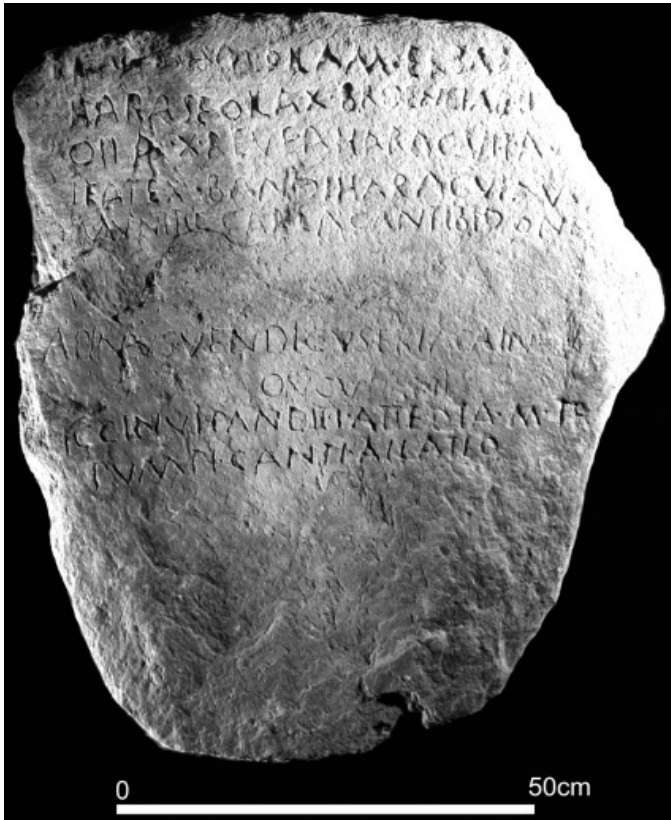 OILAM·ERBAM
HARASE OILA·X·BROENEIAE H
OILA·X·REVE AHARACVI
IEATE·X·BANDI HARACVI AV
MVNITIE CARIA CANTIBIDONE
APINVS VENDICVS ERIACAINV
ICCINVI PANDITI·ATTEDIA·M·TR
PVMPI·CANTI·AILATIO
0 50cm